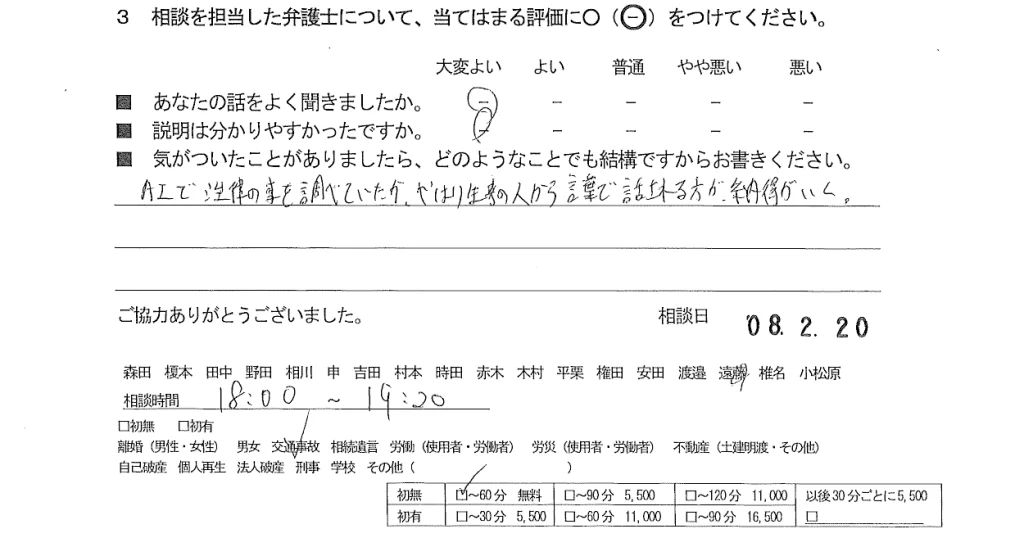 3 相談を担当した弁護士について、当てはまる評価に○（㊀）をつけてください。
大変よい よい 普通 やや悪い 悪い
■ あなたの話をよく聞きましたか。 － － － － －
■ 説明は分かりやすかったですか。 － － － － －
■ 気がついたことがありましたら、どのようなことでも結構ですからお書きください。
AIで法律の事を調べていたが、やはり生身の人から言葉で話される方が、納得がいく。
ご協力ありがとうございました。 相談日 '08. 2. 20
森田 榎本 田中 野田 相川 申 吉田 村本 時田 赤木 木村 平栗 権田 安田 渡邉 遠藤 椎名 小松原
相談時間 18:00 ～ 19:20
□初無 □初有
離婚（男性・女性） 男女 交通事故 相続遺言 労働（使用者・労働者） 労災（使用者・労働者） 不動産（土建明渡・その他）
自己破産 個人再生 法人破産 刑事 学校 その他（ ）
初無 □～60分 無料 □～90分 5,500 □～120分 11,000 以後30分ごとに5,500
初有 □～30分 5,500 □～60分 11,000 □～90分 16,500 □